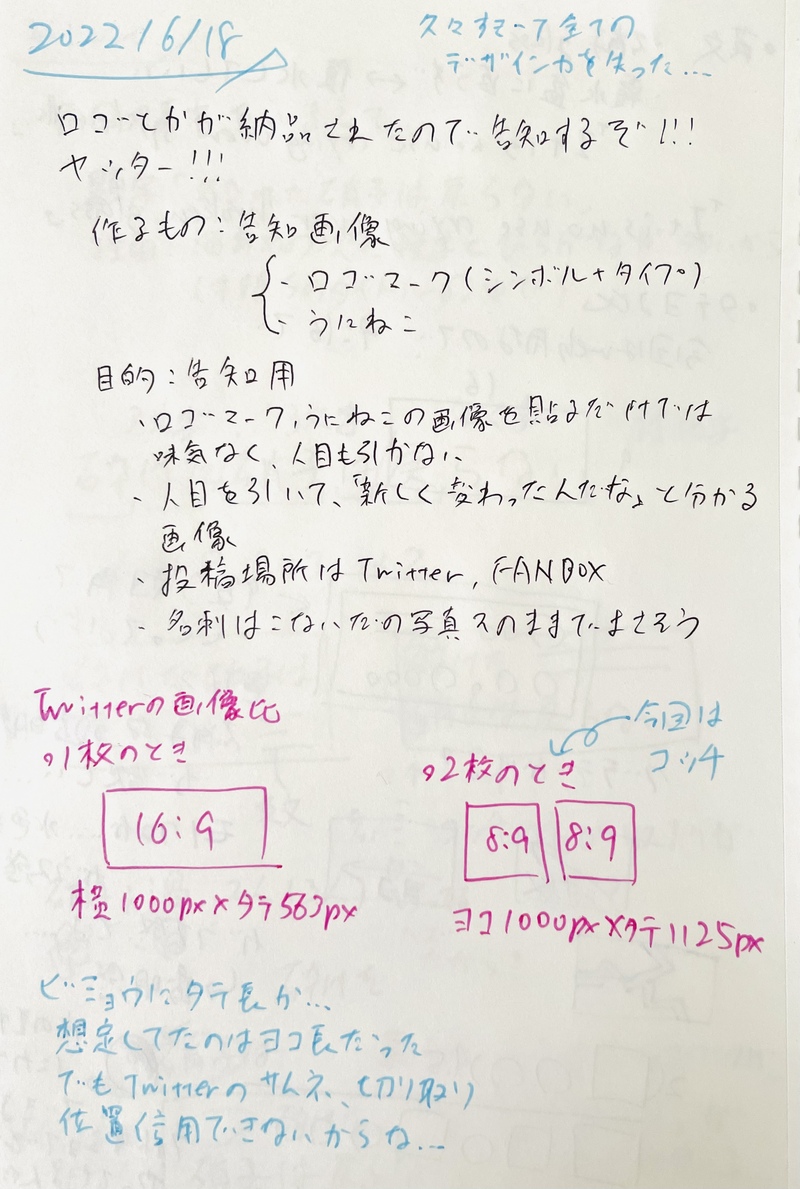 2022/6/18
久々すぎて全ての
デザイン力を失った…
ロゴとかが納品されたので告知するぞ!!!
ヤッター!!!
作るもの:告知画像
・ロゴマーク(シンボル+タイプ)
・うにねこ
目的:告知用
・ロゴマーク,うにねこの画像を貼るだけでは
味気なく、人目も引かない
・人目を引いて、「新しく変わったんだな」と分かる
画像
・投稿場所はTwitter, FANBOX
・名刺はこないだの写真スのままでまさそう
Twitterの画像比
・1枚のとき
16:9
横1000px×タテ563px
・2枚のとき
今回は
コッチ
8:9 8:9
ヨコ1000px×タテ1125px
ビミョウにタテ長か…
想定してたのはヨコ長だった
でもTwitterのサムネ、切り取り
位置信用できないからな…